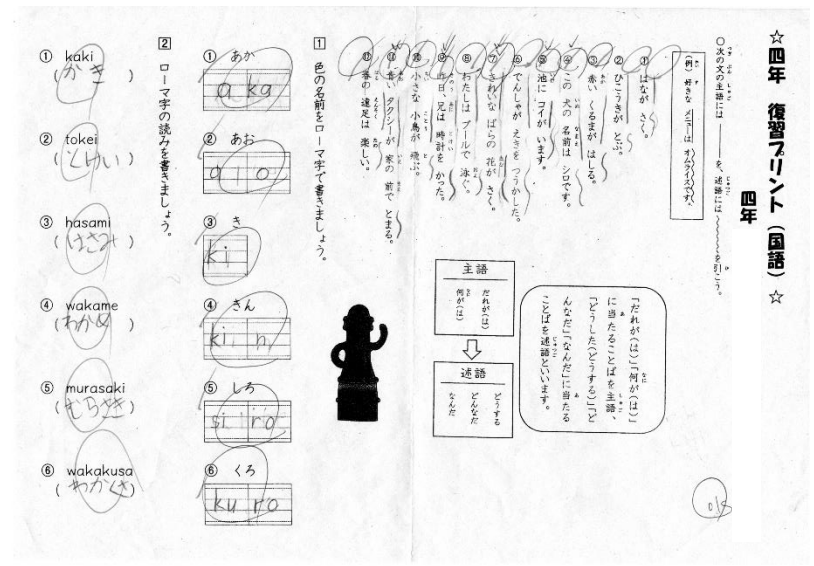 ☆ 四年 復習プリント（国語）☆
四年
○次の文の主語には――を、述語には〜〜を引こう。
（例）好きな メニューは オムライスです。
① はなが さく。
② ひこうきが とぶ。
③ 赤い くるまが はしる。
④ この 犬の 名前は シロです。
⑤ 池に コイが います。
⑥ でんしゃが えきを つうかした。
⑦ きれいな ばらの 花が さく。
⑧ わたしは プールで 泳ぐ。
⑨ 昨日、兄は 時計を かった。
⑩ 小さな 小鳥が 飛ぶ。
⑪ 青い タクシーが 家の 前で とまる。
⑫ 春の 遠足は 楽しい。
「だれが（は）」「何が（は）」
に当たることばを主語、
「どうした（どうする）」「ど
んなだ」「なんだ」に当たる
ことばを述語といいます。
主語
だれが（は）
何が（は）
述語
どうする
どんなだ
なんだ
1 色の名前をローマ字で書きましょう。
① あか
aka
② あお
ao
③ き
ki
④ きん
kin
⑤ しろ
siro
⑥ くろ
kuro
2 ローマ字の読みを書きましょう。
① kaki
（かき）
② tokei
（とけい）
③ hasami
（はさみ）
④ wakame
（わかめ）
⑤ murasaki
（むらさき）
⑥ wakakusa
（わかくさ）